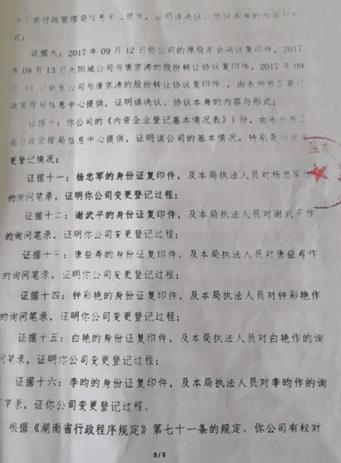 行政管理局信息中心提供，证明该决议、协议本身的内容
式；
证据九：2017年09月12日你公司的原股东会决议复印件，2017
年09月13日大阳城公司与唐京涛的股份转让协议复印件，2017年09
月13日 生公司与唐京涛的股份转让协议复印件，由永州市工商
政管理局信息中心提供，证明该决议、协议本身的内容与形式；
证据十：你公司的《内资企业登记基本情况表》1份，由永州市工
商行政管理局信息中心提供，证明该公司的基本情况，特别是
更登记情况；
证据十一：杨忠军的身份证复印件，及本局执法人员对杨忠军
的询问笔录，证明你公司变更登记过程；
证据十二：谢武平的身份证复印件，及本局执法人员对谢武平作
的询问笔录，证明你公司变更登记过程；
证据十三：唐益寿的身份证复印件，及本局执法人员对唐益寿作
的询问笔录，证明你公司变更登记过程；
证据十四：钟彩艳的身份证复印件，及本局执法人员对钟彩艳作
的询问笔录，证明你公司变更登记过程；
证据十五：白艳的身份证复印件，及本局执法人员对白艳作的询
问笔录，证明你公司变更登记过程；
证据十六：李昀的身份证复印件，及本局执法人员对李昀作的询
笔录，证你公司变更登记过程。
根据《湖南省行政程序规定》第七十一条的规定，你公司有权对
3/5